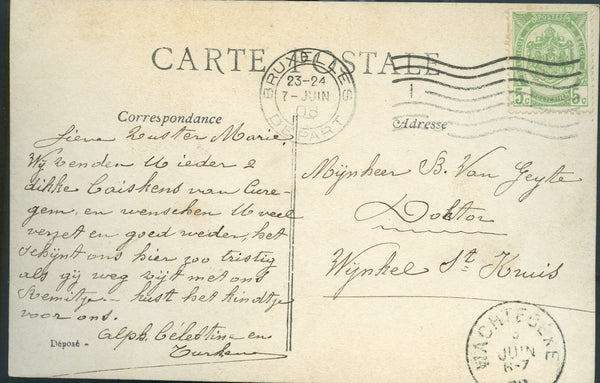 CARTE POSTALE
BRUXELLES
23-24
7-JUIN
08
DEPART
1
POSTES
5c 5c
Correspondance
Adresse
Lieve Zuster Marie,
Wij zenden U ieder 2
dikke baiskens van Cure-
gem, en wenschen U veel
verzet en goed weder, het
schijnt ons hier zoo tristig
als gij weg zijt met ons
Remitje – kust het kindtje
voor ons.
Alph. Célestine en
Mijnheer B. Van Geyte
Doktor
Wynkel St Kruis
Déposé -
WACHTEBEKE
JUIN
6-7